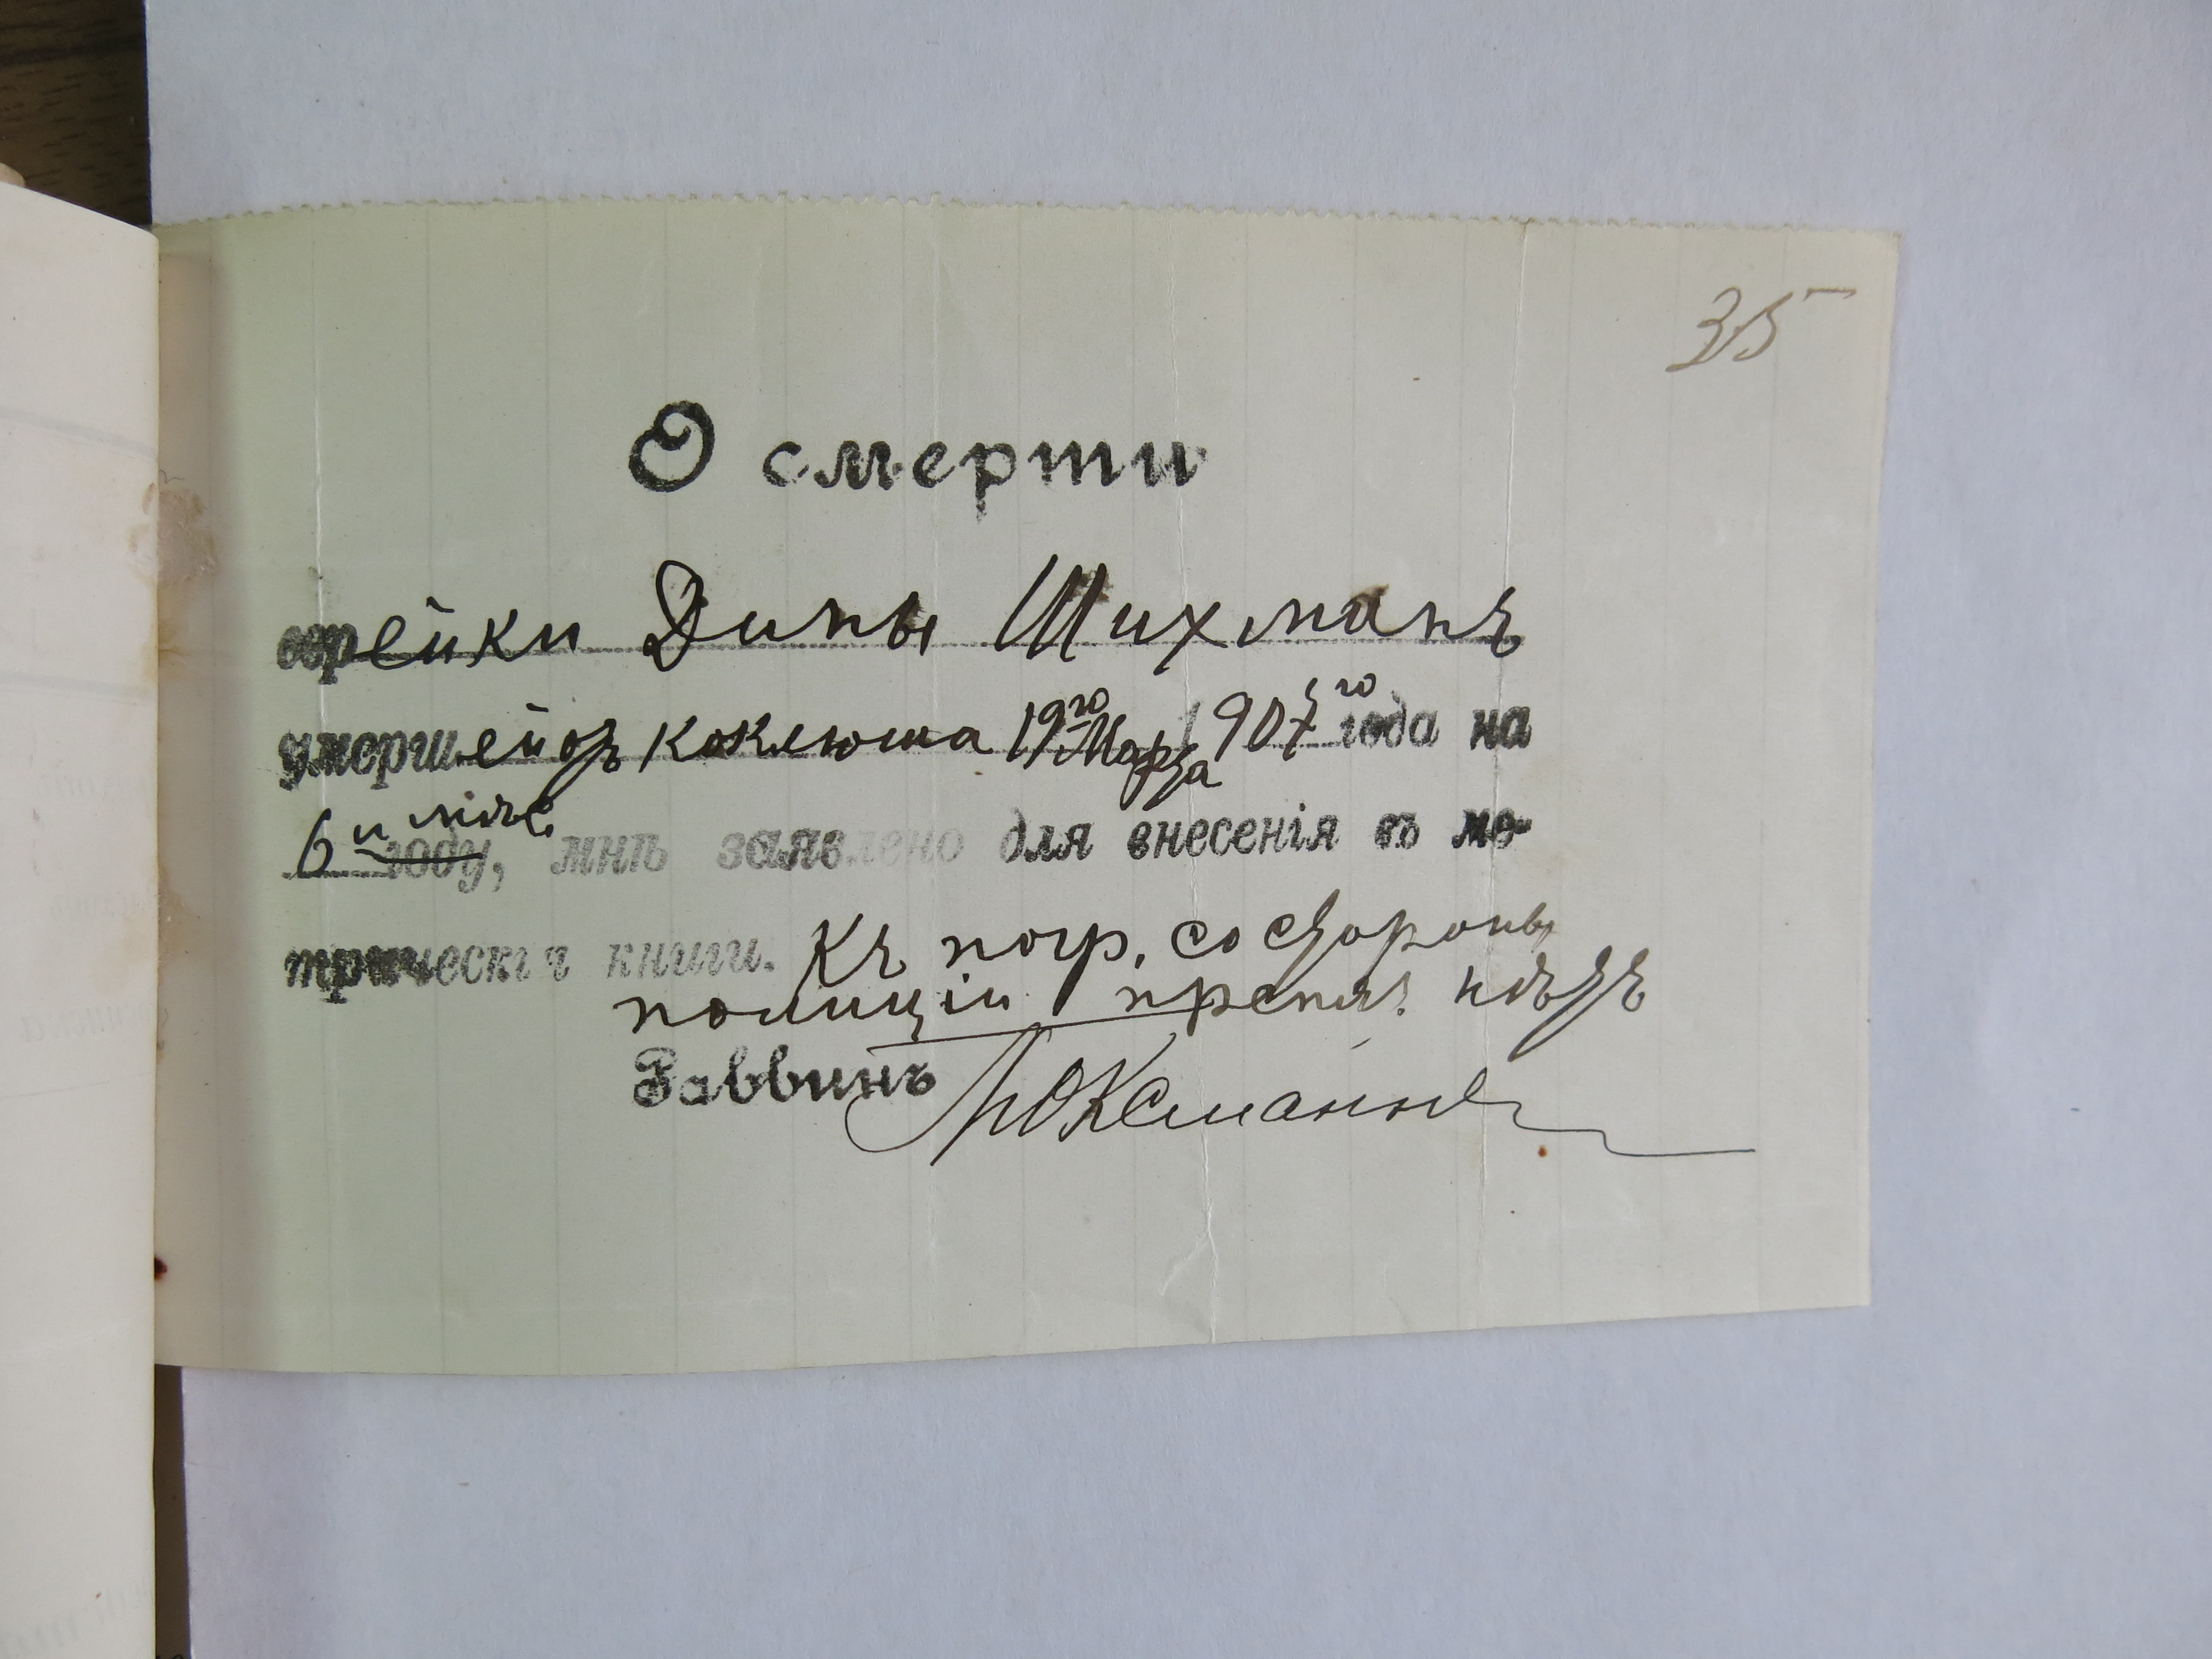 35
О смерти
еврейки Дины Шихманъ
умершей отъ коклюша 19го Марта 1907го года на
6и мѣс. году, мнѣ заявлено для внесенія въ ме-
трическія книги. Къ погр. со стороны
полиціи препят. нѣтъ
Раввинъ